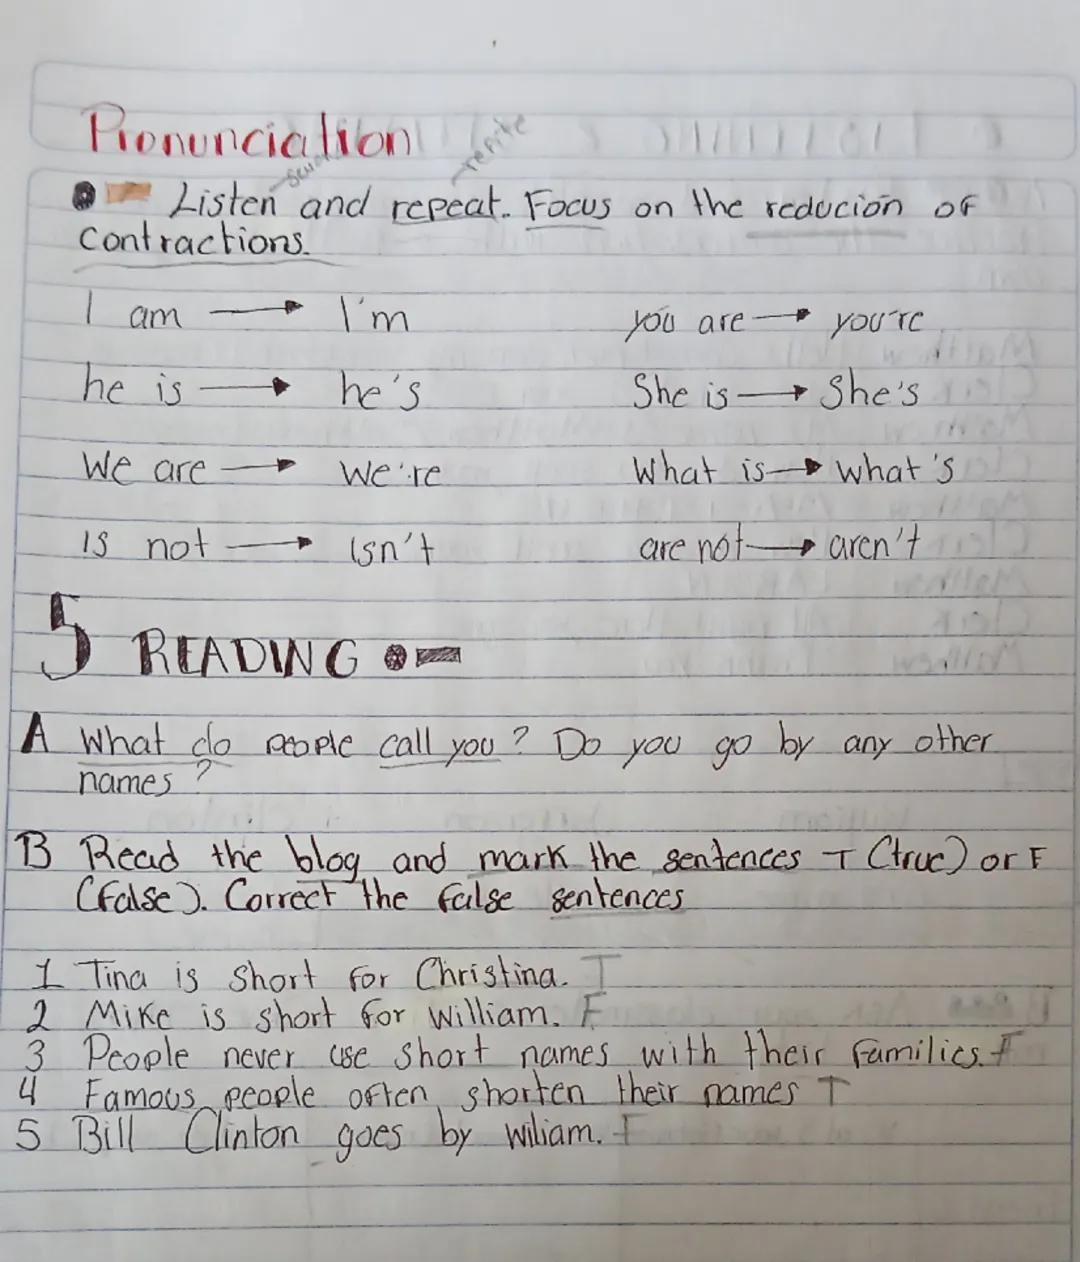 Pronunciation
repite
Listen and repeat. Focus on the reducción of
contractions.
I am → I'm you are → you're
he is → he's She is → She's
We are → We're What is → what's
is not → isn't are not → aren't
5 READING
A What do people call you? Do you go by any other
names?
B Read the blog and mark the sentences T (true) or F
(false). Correct the false sentences
1 Tina is short for Christina. T
2 Mike is short for William. F
3 People never use short names with their families. F
4 Famous people often shorten their names T
5 Bill Clinton goes by wiliam. F